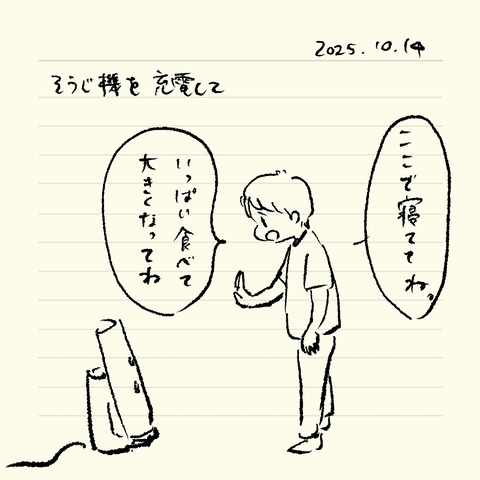 2025.10.14
そうじ機を充電して
ここで寝ててね。
いっぱい食べて
大きくなってね